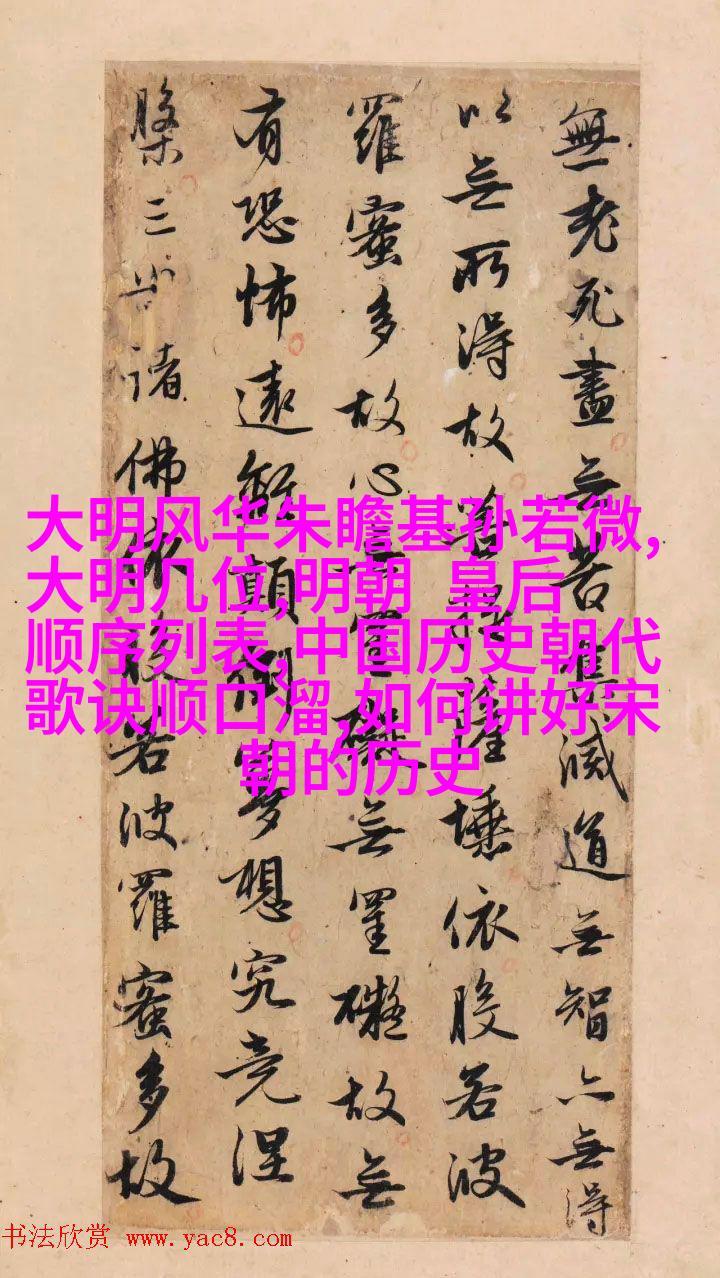 無老死盡无苦集滅道无智亦无得
以无所得故菩提薩埵依般若波
羅蜜多故心无罣礙无罣礙故无
有恐怖遠離顛倒夢想究竟涅
槃三世諸佛依般若波羅蜜多故
大明风华朱瞻基孙若微,
大明几位,明朝 皇后
顺序列表,中国历史朝代
歌诀顺口溜,如何讲好宋
朝的历史
书法欣赏 www.yac8.com